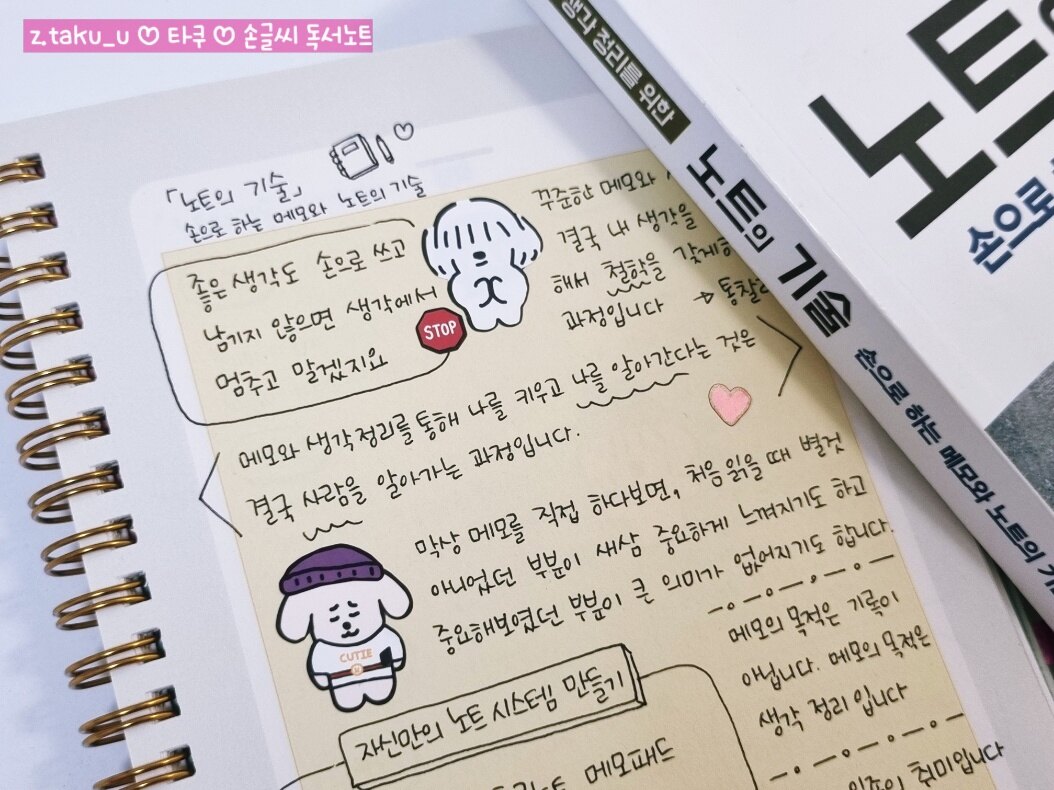 z.taku_u ♡ 타쿠 ♡ 손글씨 독서노트
「노트의 기술」
손으로 하는 메모와 노트의 기술
좋은 생각도 손으로 쓰고
남기지 않으면 생각에서
멈추고 말겠지요
STOP
꾸준한 메모와
결국 내 생각을
해서 철학을 갖게
과정입니다 →
메모와 생각정리를 통해 나를 키우고 나를 알아간다는 것은
결국 사람을 알아가는 과정입니다.
막상 메모를 직접 하다보면, 처음 읽을 때 별것
아니었던 부분이 새삼 중요하게 느껴지기도 하고
중요해보였던 부분이 큰 의미가 없어지기도 합니다.
CUTIE
메모의 목적은 기록이
아닙니다. 메모의 목적은
생각 정리 입니다
자신만의 노트 시스템 만들기
메모패드
취미입니다
생각 정리를 위한
노트의 기술
손으로 하는 메모와 노트의
노트
손으로